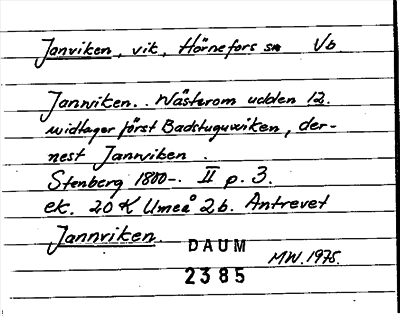 Janviken, vik, Hörnefors sn Vb.
Jannviken.. Wästerom udden 12.
widtager först Badstuguwiken, der-
nest Jannviken.
Stenberg 1800-. II p. 3.
ek. 20 K Umeå 2b. Antrevet
Jannviken.
DAUM
2385
MW. 1975.